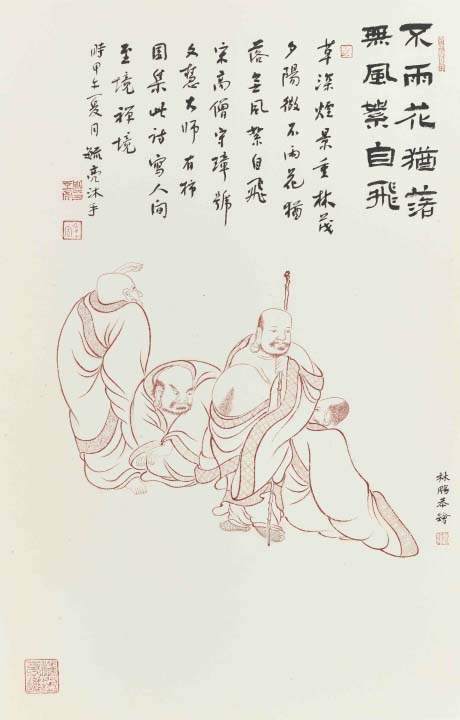 不雨花猶落
無風絮自飛
草深煙景重林茂
夕陽微不雨花猶
落無風絮自飛
宋高僧守璋號
文慧大師有柿
園集此詩寫人間
至境禪境
時甲午夏月毓亮沐手
林 恭繪